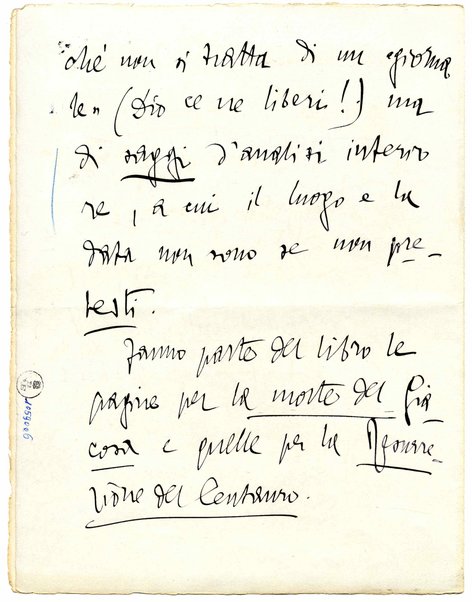 ché non si tratta di un «giorna
le» (Dio ce ne liberi!) ma
di saggi d'analisi interio
re, a cui il luogo e la
data non sono se non pre-
testi.
Fanno parte del libro le
pagine per la morte del Gia
cosa e quelle per la Resurre-
zione del Centauro.